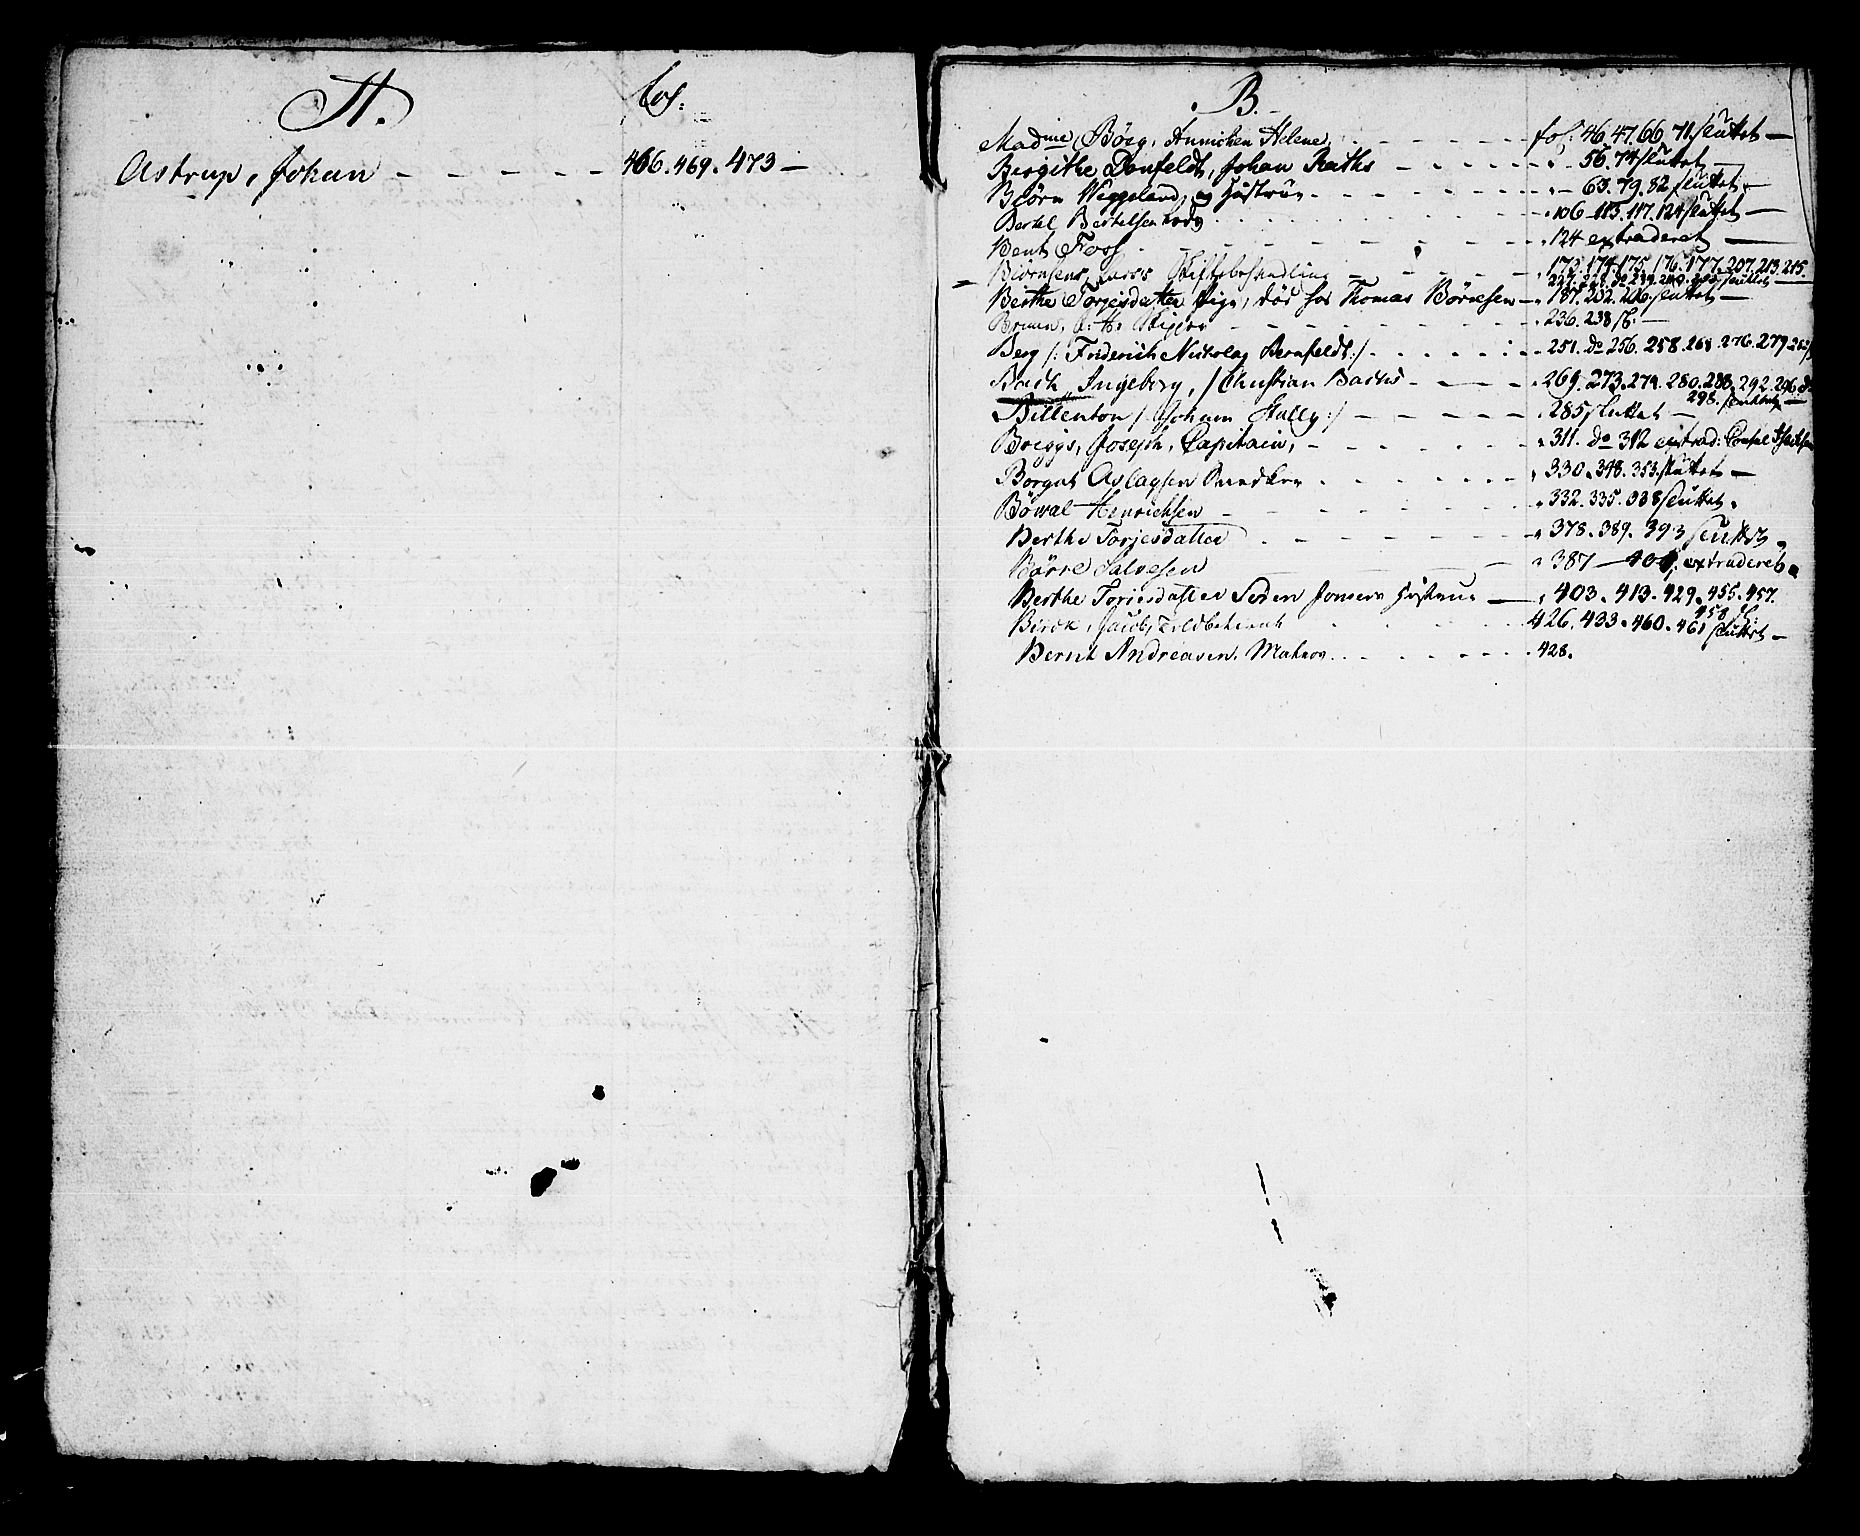 A. fol:
Astrup, Johan - - - - - 466. 469. 473 -
B.
Madme Börg, Annichen Helene, - - - - fol: 46. 47. 66. 71. sluttet -
Birgithe Danfeldt, Johan Raths - - - - " 56. 74 sluttet -
Biörn Weggeland, og Hustrue - - - - " - 63. 79. 82 sluttet -
Bertel Bertelsen - - - - " 106 - 113. 117. 124 sluttet -
Bent Foss - - - - " 124 extraderet -
Biörnsens, Lars Skiftebehandling - - - - " 173. 174. 175. 176. 177. 207. 213. 215.
do 239. 240. sluttet -
Birthe Torjesdatter Pige, död hos Thomas Börresen - " 187. 202. 206. sluttet -
Skipper - - - - " 236. 238 sl: -
Berg /: Friderich Nickolay Bernfeldt :/ - - - - " 251. do 256. 258. 268. 276. 279
Bach Ingeborg, /Christian Bachs - - - - " 269. 273. 274. 280. 288. 292. 296 do
298. sluttet -
Billenton / Johann Hally :/ - - - - " 285 sluttet -
Briggs, Joseph, Capitain, - - - - " 311. do 312 extrad: Consul Isachsen
Börgut Aslagsen Snedker - - - - " 330. 348. 353. sluttet -
Börval Henrichsen - - - - " 332. 335. 338 sluttet.
Berthe Torjesdatter - - - - " 378. 389. 393 sluttet.
Börre Salvesen - - " 387 - 401. extraderet.
Berthe Toriesdatter Sören Jonsens Hustrue - " 403. 413. 429. 455. 457.
458 sl:
Birck, Jacob, Toldbetient - - - - 426. 433. 460. 461 sluttet -
Bernt Andreasen. Matros - - - - " 428.